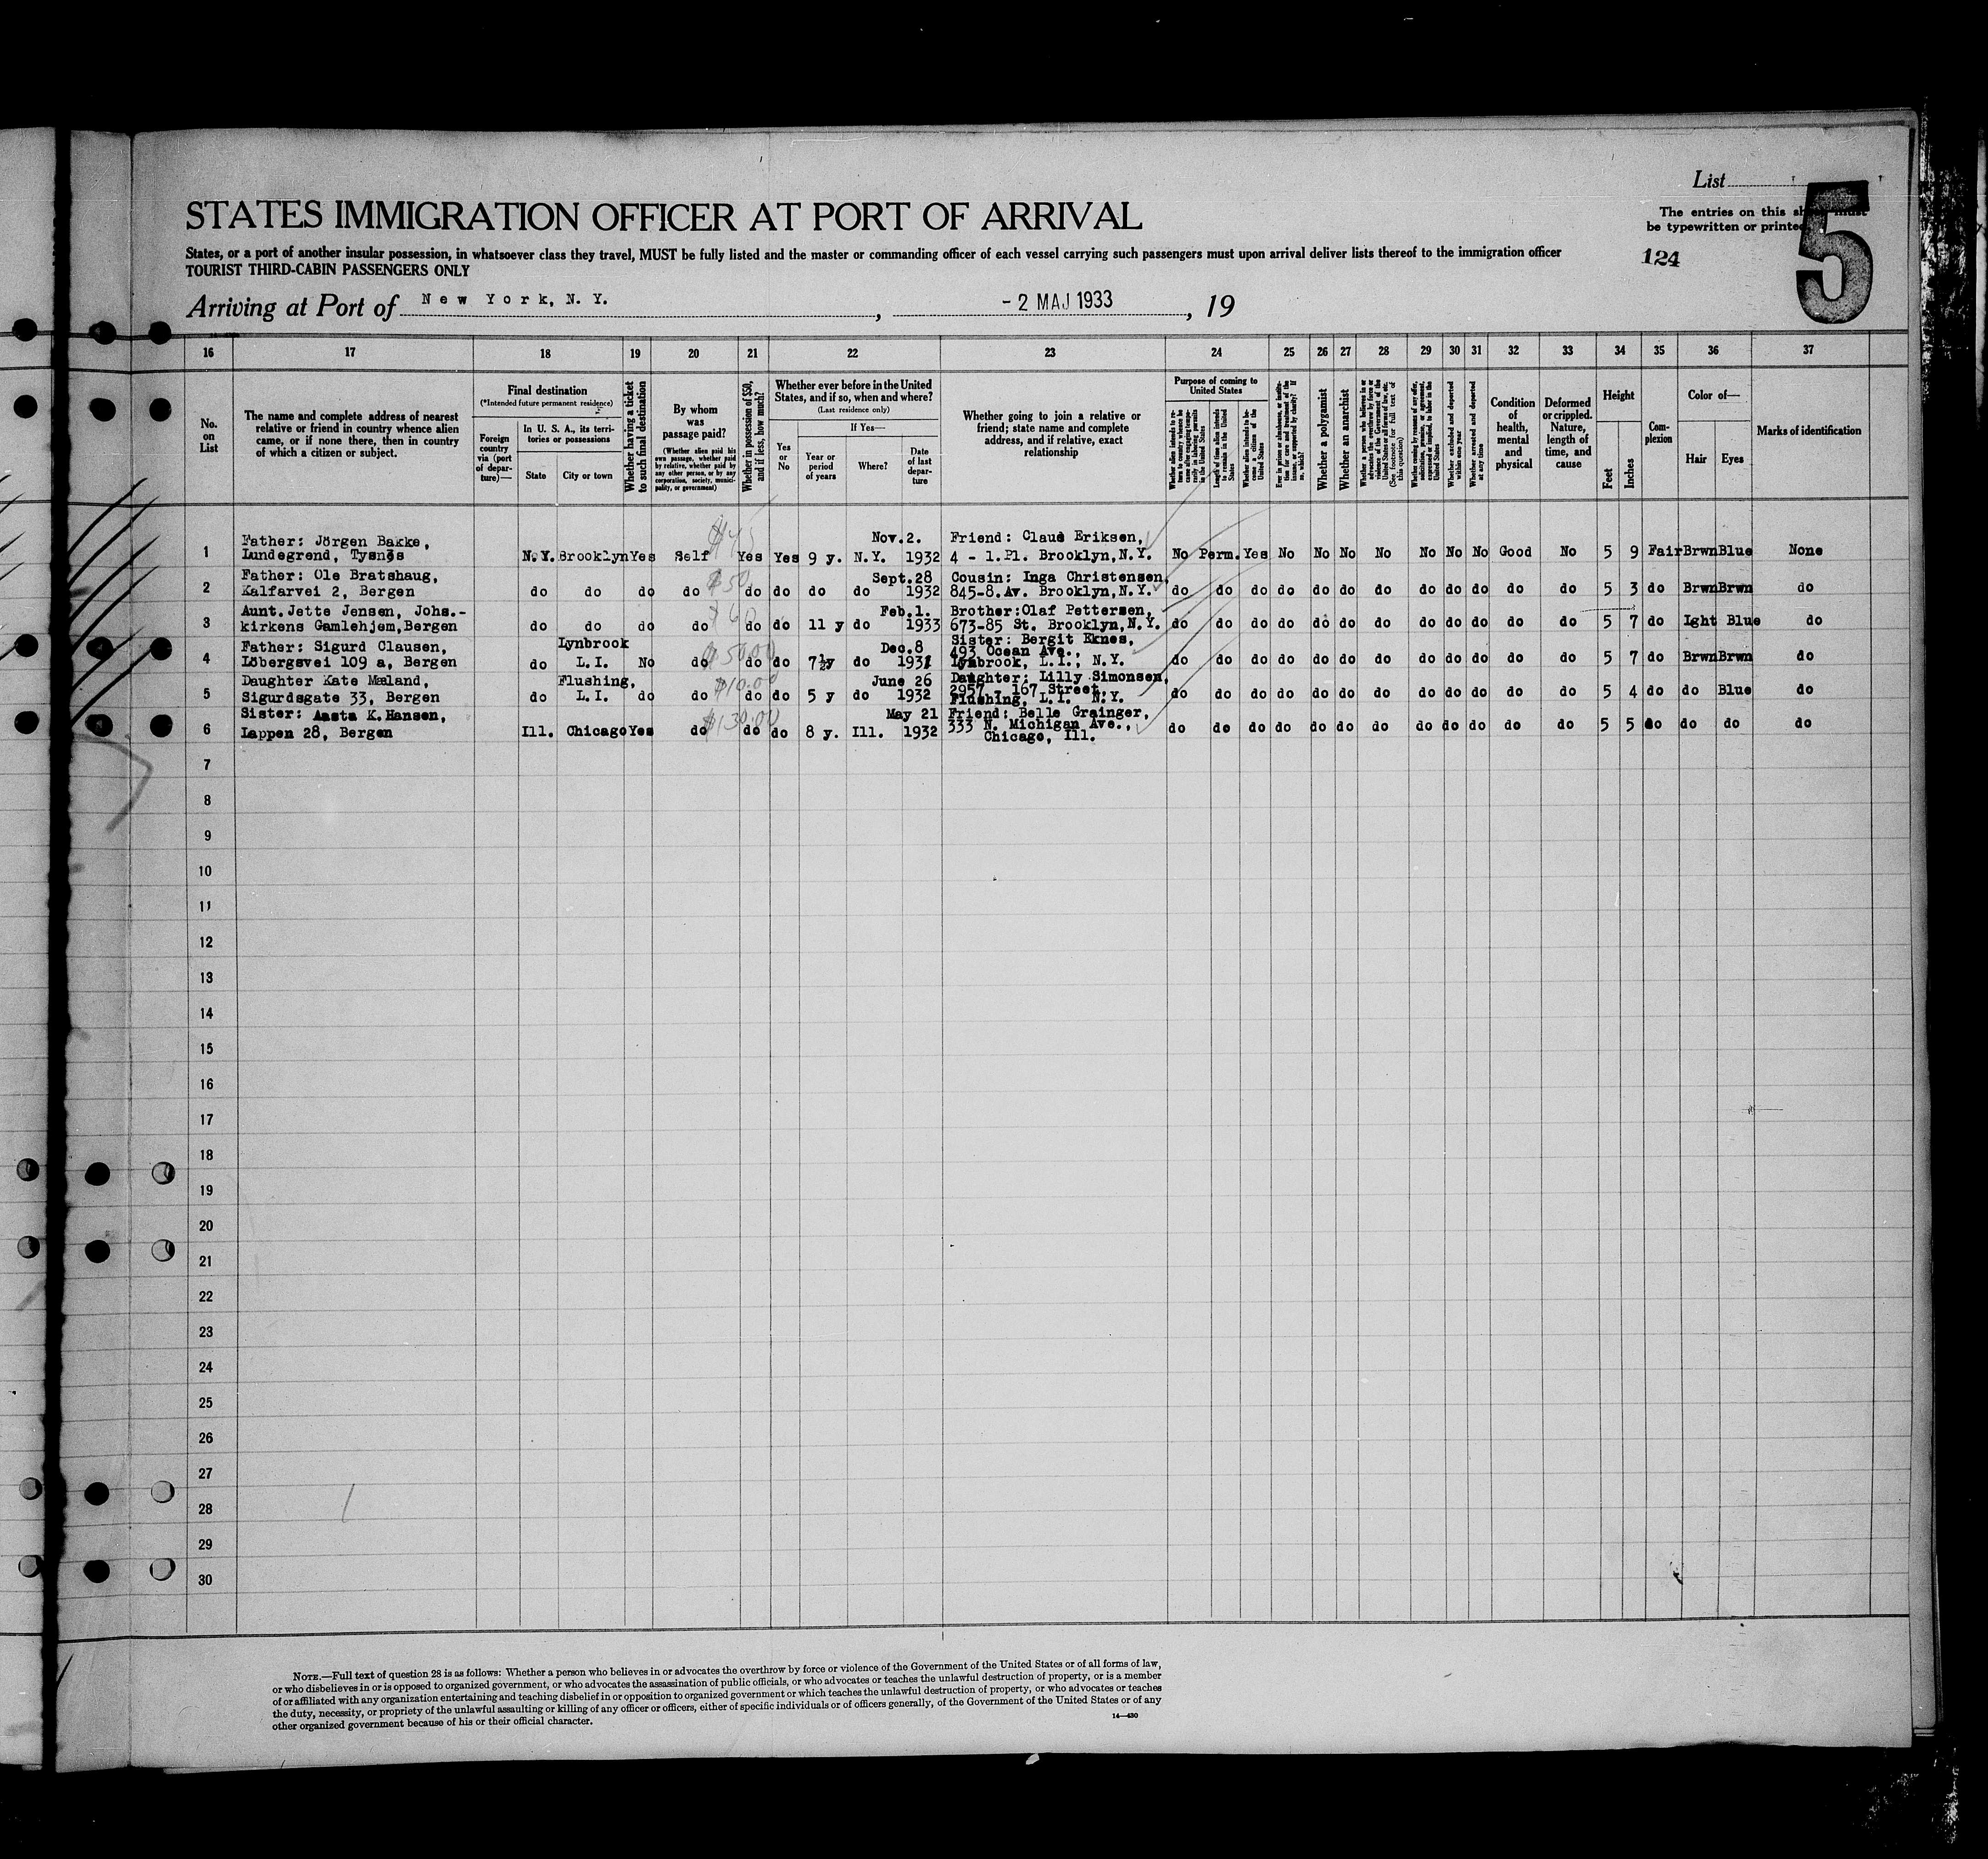 List
5
The entries on this sh
must
be typewritten or printed
124
STATES IMMIGRATION OFFICER AT PORT OF ARRIVAL
States, or a port of another insular possession, in whatsoever class they travel, MUST be fully listed and the master or commanding officer of each vessel carrying such passengers must upon arrival deliver lists thereof to the immigration officer
TOURIST THIRD-CABIN PASSENGERS ONLY
Arriving at Port of New York, N. Y. , - 2 MAJ 1933 , 19
16 17 18 19 20 21 22 23 24 25 26 27 28 29 30 31 32 33 34 35 36 37
No. on List
The name and complete address of nearest
relative or friend in country whence alien
came, or if none there, then in country
of which a citizen or subject.
Final destination
(*Intended future permanent residence)
Foreign
country
via (port
of depar-
ture)—
In U. S. A., its terri-
tories or possessions
State
City or town
Whether having a ticket
to such final destination
By whom
was
passage paid?
(Whether alien paid his
own passage, whether paid
by relative, whether paid by
any other person, or by any
corporation, society, munici-
pality, or government)
Whether in possession of $50,
and if less, how much?
Whether ever before in the United
States, and if so, when and where?
(Last residence only)
Yes
or
No
If Yes—
Year or
period
of years
Where?
Date
of last
depar-
ture
Whether going to join a relative or
friend; state name and complete
address, and if relative, exact
relationship
Purpose of coming to
United States
Length of time alien intends
to remain in the United
States
Whether alien intends to be-
come a citizen of the
United States
Whether a polygamist
Whether an anarchist
(See footnote for full text of
this question)
Whether excluded and deported
within one year
Whether arrested and deported
at any time
Condition
of
health,
mental
and
physical
Deformed
or crippled.
Nature,
length of
time, and
cause
Height
Feet
Inches
Com-
plexion
Color of—
Hair
Eyes
Marks of identification
1 Father: Jörgen Bakke, Lundegrend, Tysnes N.Y. Brooklyn Yes Self $45 Yes Yes 9 y. N.Y. Nov.2. 1932 Friend: Claus Eriksen, 4 - 1.Pl. Brooklyn,N.Y. No Perm. Yes No No No No No No No Good No 5 9 Fair Brwn Blue None
2 Father: Ole Bratshaug, Kalfarvei 2, Bergen do do do do $50 do do do do Sept.28 1932 Cousin: Inga Christensen, 845-8.Av. Brooklyn,N.Y. do do do do do do do do do do do do 5 3 do Brwn Brwn do
3 Aunt.Jette Jensen, Johs.- kirkens Gamlehjem,Bergen do do do do $60 do do 11 y do Feb.1. 1933 Brother:Olaf Pettersen, 673-85 St. Brooklyn,N.Y. do do do do do do do do do do do do 5 7 do Lght Blue do
4 Father: Sigurd Clausen, Löbergsvei 109 a, Bergen do Lynbrook L.I. No do $50.00 do do 7½y do Dec.8 1931 Sister: Bergit Eknes, 493 Ocean Ave., Lynbrook, L.I., N.Y. do do do do do do do do do do do do 5 7 do Brwn Brwn do
5 Daughter Kate Mæland, Sigurdsgate 33, Bergen do Flushing, L.I. do do $10.00 do do 5 y do June 26 1932 Daughter: Lilly Simonsen, 2957 - 167 Street, Flushing, L.I. N.Y. do do do do do do do do do do do do 5 4 do do Blue do
6 Sister: Aasta K.Hansen, Lappen 28, Bergen Ill. Chicago Yes do $130.00 do do 8 y. Ill. May 21 1932 Friend: Belle Grainger, 333 N. Michigan Ave., Chicago, Ill. do do do do do do do do do do do do 5 5 do do do do
7
8
9
10
11
12
13
14
15
16
17
18
19
20
21
22
23
24
25
26
27
28
29
30
NOTE.—Full text of question 28 is as follows: Whether a person who believes in or advocates the overthrow by force or violence of the Government of the United States or of all forms of law,
or who disbelieves in or is opposed to organized government, or who advocates the assassination of public officials, or who advocates or teaches the unlawful destruction of property, or is a member
of or affiliated with any organization entertaining and teaching disbelief in or opposition to organized government or which teaches the unlawful destruction of property, or who advocates or teaches
the duty, necessity, or propriety of the unlawful assaulting or killing of any officer or officers, either of specific individuals or of officers generally, of the Government of the United States or of any
other organized government because of his or their official character.
14—430